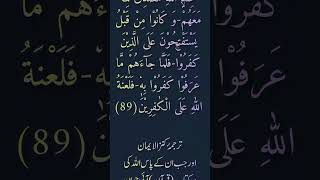 مَعَهُمْ-وَ كَانُوْا مِنْ قَبْلُ
یَسْتَفْتِحُوْنَ عَلَى الَّذِیْنَ
كَفَرُوْا-فَلَمَّا جَآءَهُمْ مَّا
عَرَفُوْا كَفَرُوْا بِهٖ-فَلَعْنَةُ
اللّٰهِ عَلَى الْكٰفِرِیْنَ(89)
ترجمۂ کنز الایمان
اور جب ان کے پاس اللہ کی